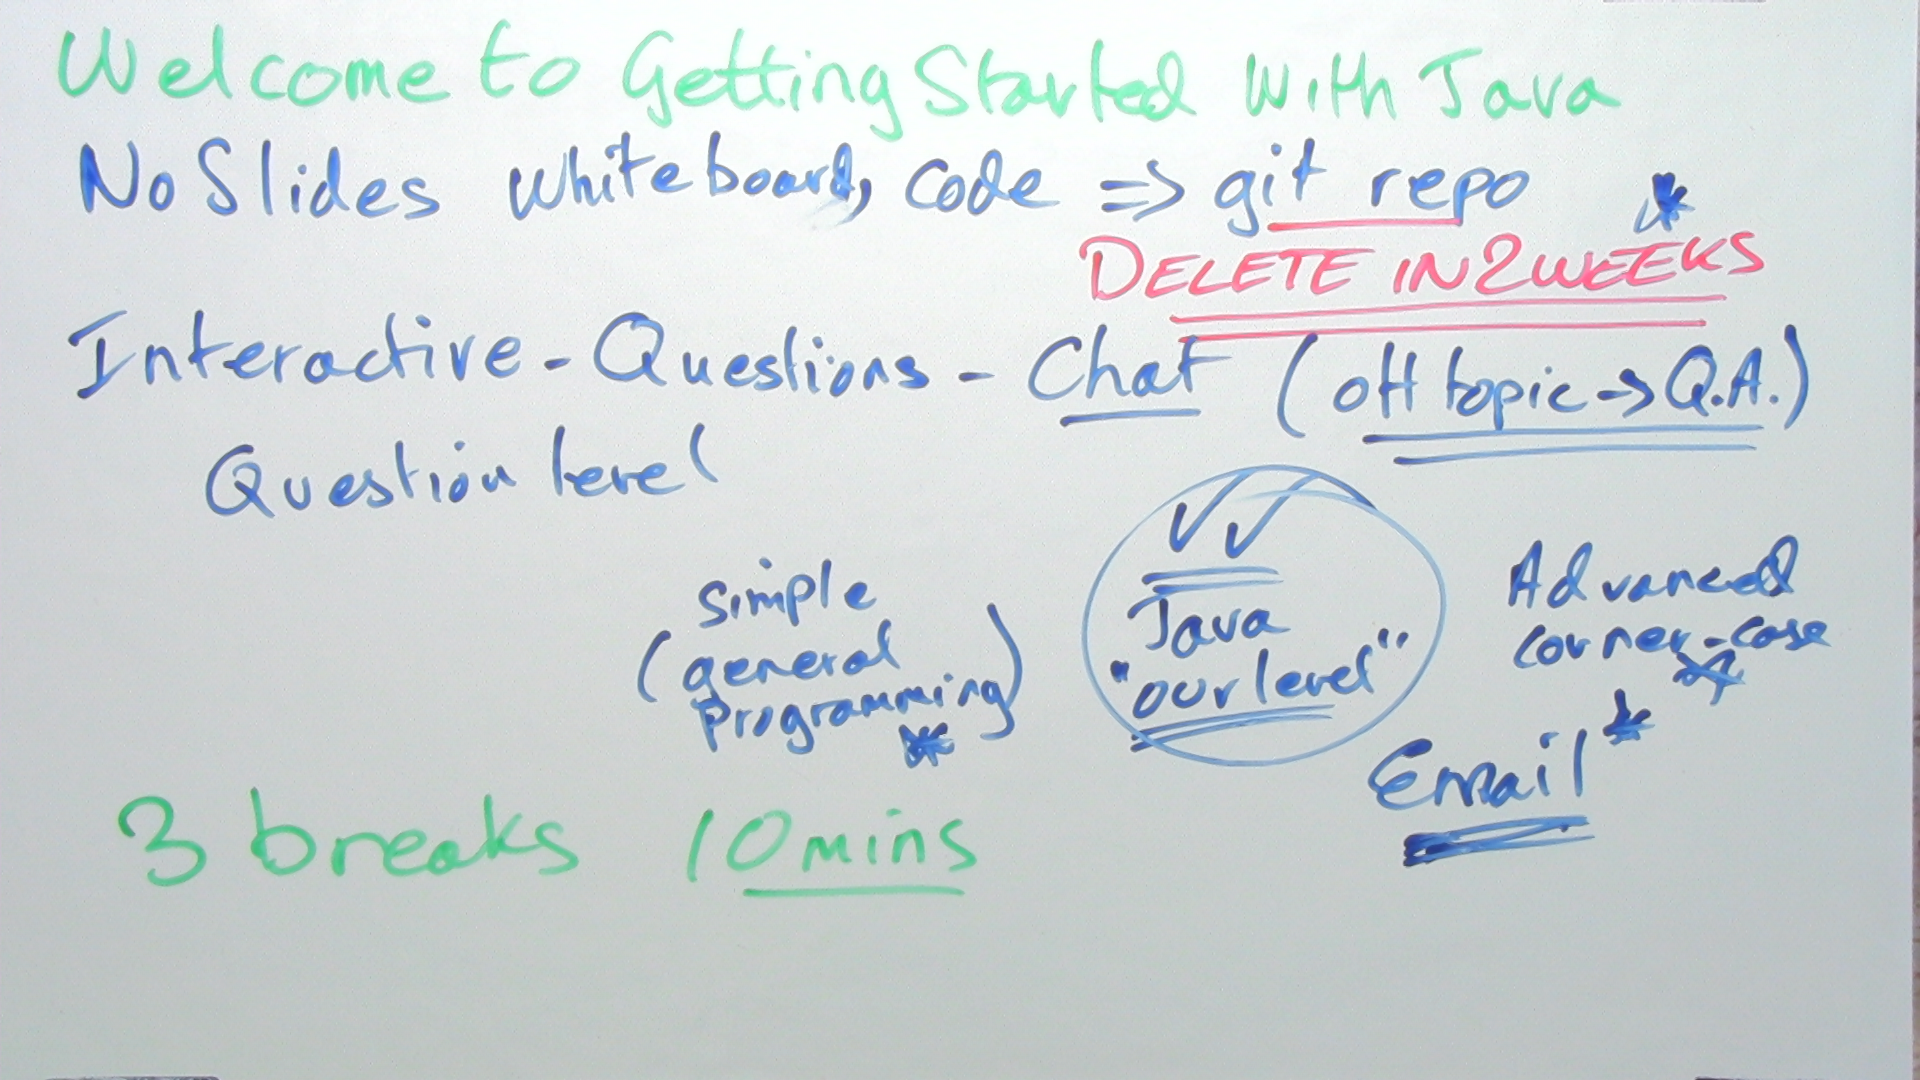 Welcome to Getting Started With Java
No Slides whiteboard, code => git repo *
DELETE IN 2 WEEKS
Interactive - Questions - Chat (off topic -> Q.A.)
Question level
simple
(general
programming)
*
✓✓
Java
"our level"
Advanced
corner-case
*
Email *
3 breaks 10 mins